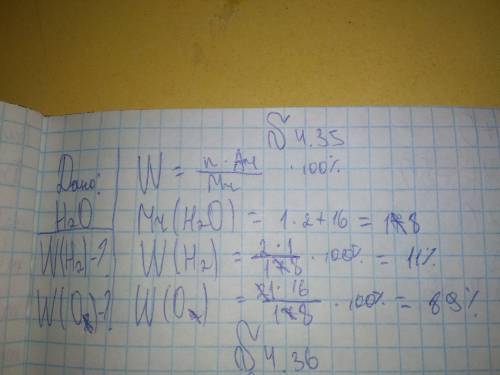 § 4.35
Дано:
H₂O
W(H₂)-?
W(O)-?
W = n · Ar / Mr · 100%
Mr(H₂O) = 1 · 2 + 16 = 18
W(H₂) = 2 · 1 / 18 · 100% = 11%
W(O) = 1 · 16 / 18 · 100% = 89%
§ 4.36